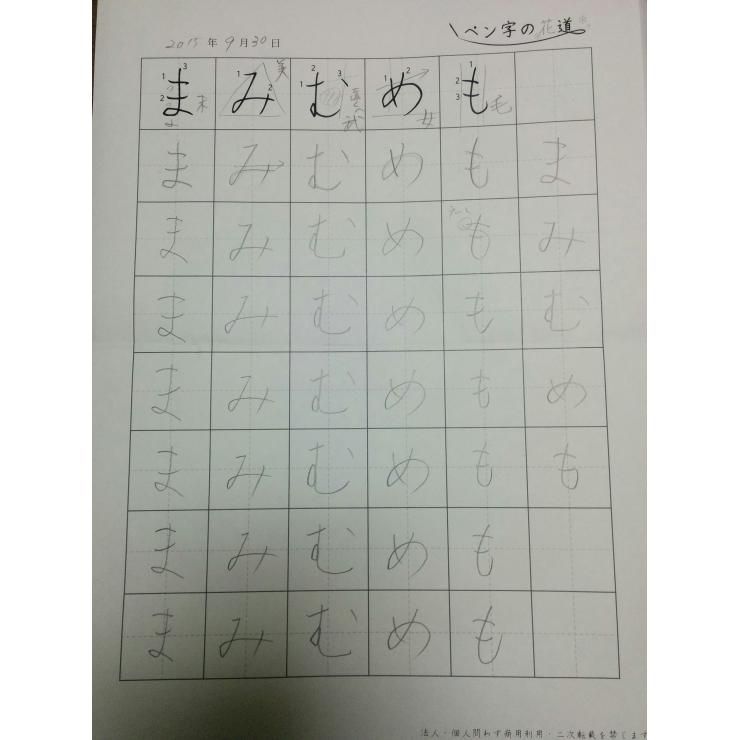 ペン字の花道
2015年9月30日
ま み む め も
末 美 武 女 毛
ま み む め も ま
ま み む め も み
ま み む め も む
ま み む め も め
ま み む め も も
ま み む め も
ま み む め も
法人・個人問わず商用利用・二次転載を禁じます